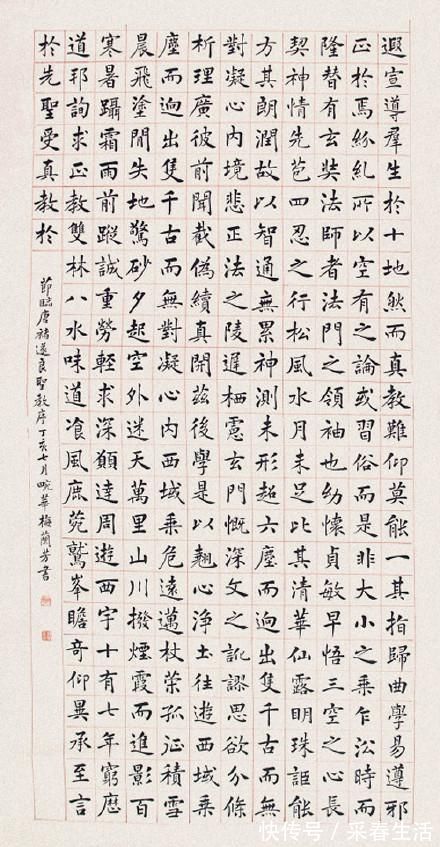 遐宣導羣生於十地然而真教難仰莫能一其指歸曲學易遵邪
正於焉紛糺所以空有之論或習俗而是非大小之乘乍沿時而
隆替有玄奘法師者法門之領袖也幼懷貞敏早悟三空之心長
契神情先苞四忍之行松風水月未足比其清華仙露明珠詎能
方其朗潤故以智通無累神測未形超六塵而逈出隻千古而無
對凝心內境悲正法之陵遲栖慮玄門慨深文之訛謬思欲分條
析理廣彼前聞截偽續真開茲後學是以翹心淨土往遊西域乘
塵而逈出隻千古而無對凝心內西域乘危遠邁杖策孤征積雪
晨飛塗閒失地驚砂夕起空外迷天萬里山川撥煙霞而進影百
寒暑躡霜雨前蹤誠重勞輕求深願達周遊西宇十有七年窮歷
道邦詢求正教雙林八水味道飡風鹿菀鷲峯瞻奇仰異承至言
於先聖受真教於
節臨唐褚遂良聖教序丁亥七月畹華梅蘭芳書
快传号 / 采春生活